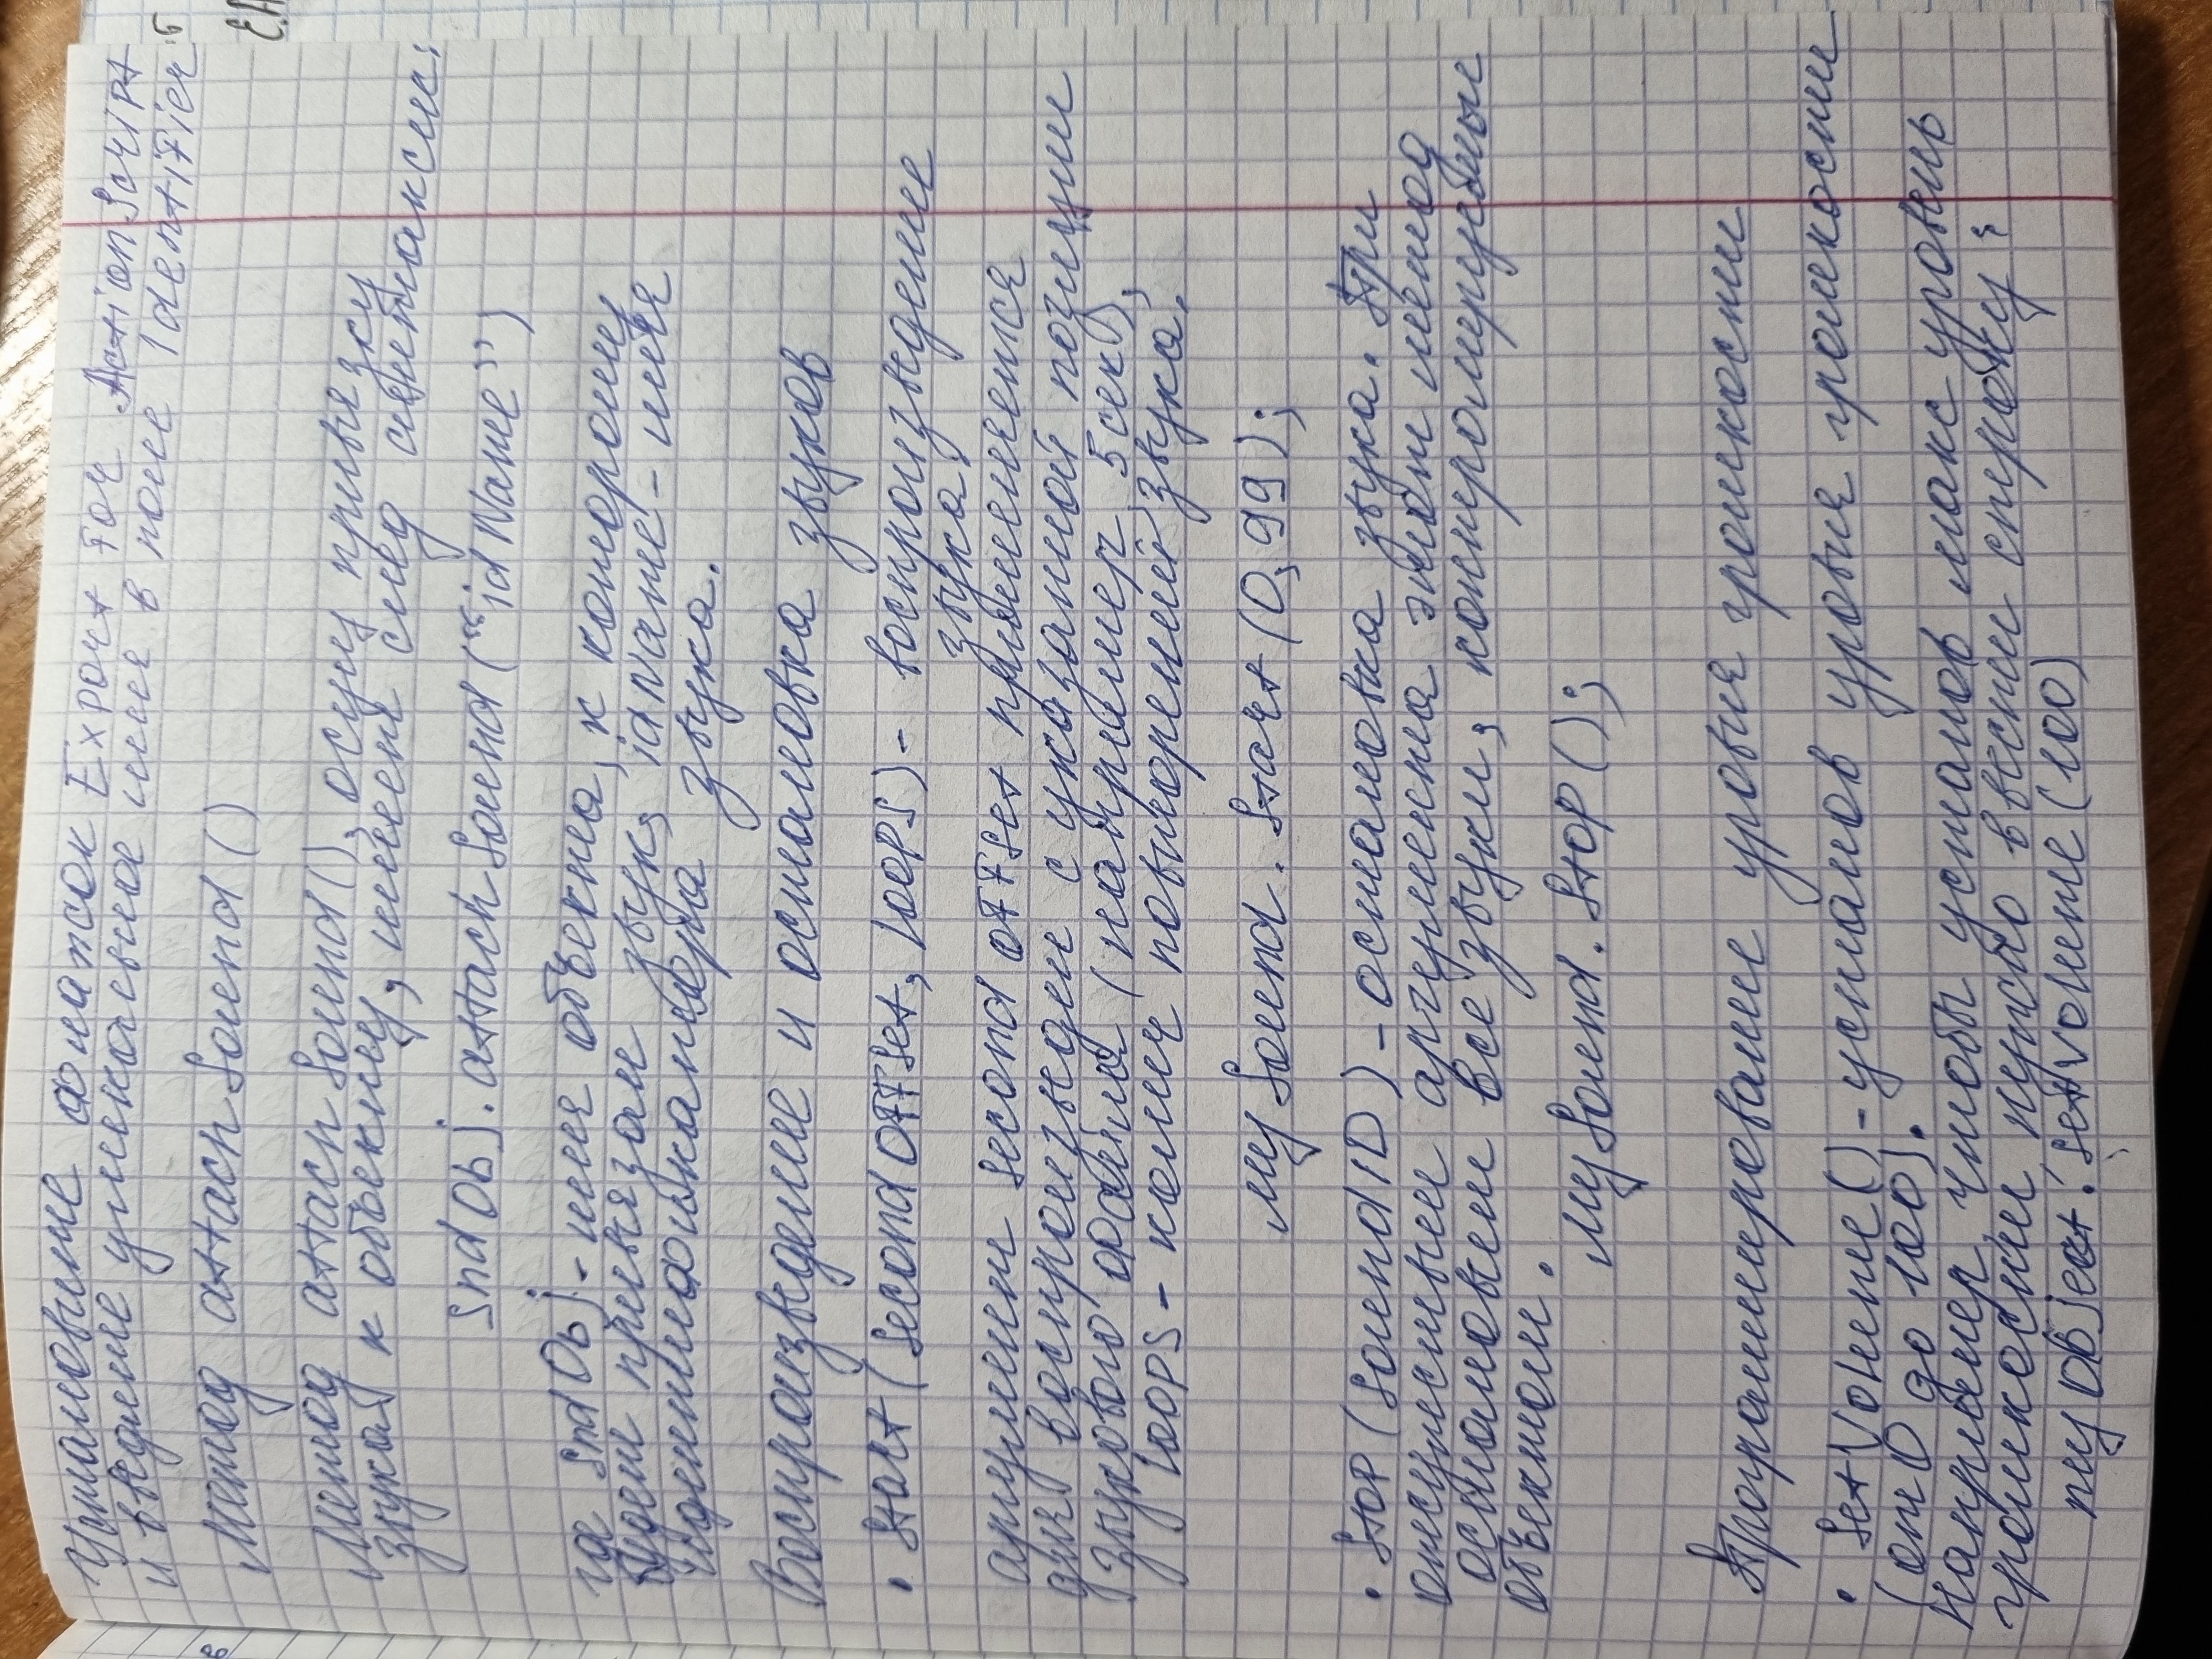 Установите флажок Export For ActionScript
и введите уникальное имя в поле Identifier
Метод attachSound()
Метод attachSound(), осущ привязку
звука к объекту, имеет след синтаксис:
SndObj.attachSound("idName")
где SndObj - имя объекта, к которому
будет привязан звук, idName - имя
идентификатора звука.
Воспроизведение и остановка звуков
• Start (SecondOFFSet, loops) - воспроизведение
звука.
аргумент Second OFFSet применяется
для воспроизведен с указанной позиции
звукового файла (например, 5 сек),
loops - колич повторений звука.
my Sound. Start (0, 99);
• Stop (SoundID) - остановка звука. При
отсутствии аргумента этот метод
остановит все звуки, контролируемые
объектом.
My Sound. Stop ();
Программирование уровня громкости
• SetVolume() - установ уровня громкости
(от 0 до 100).
Например, чтобы установ макс уровень
громкости, нужно ввести строку:
my Object. SetVolume (100)
Е.А